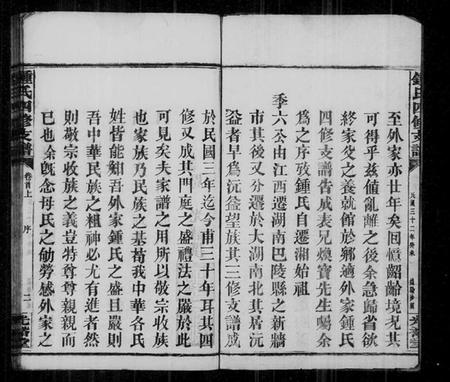 鍾氏四修支譜
至外家亦廿年矣回憶齠齡境况其
可得乎茲値亂離之後余急歸省欲
終家父之養就館於鄰適外家鍾氏
四修支譜吿成表兄煥寶先生囑余
爲之序攷鍾氏自遷湘始祖
季六公由江西遷湖南巴陵縣之新牆
市其後又分遷於大湖南北其居沅
益者早爲沅益望族其三修支譜成
於民國三年迄今甫三十年耳其四
修又成其門庭之盛禮法之嚴於此
可見矣夫家譜之用所以敬宗收族
也家族乃民族之基苟我中華各氏
姓皆能如吾外家鍾氏之盛且嚴則
吾中華民族之祖神必尤有進者然
則敬宗收族之義豈特尊尊親親而
已也余旣念母氏之劬勞感外家之
鍾氏四修支譜
卷首上
序
二